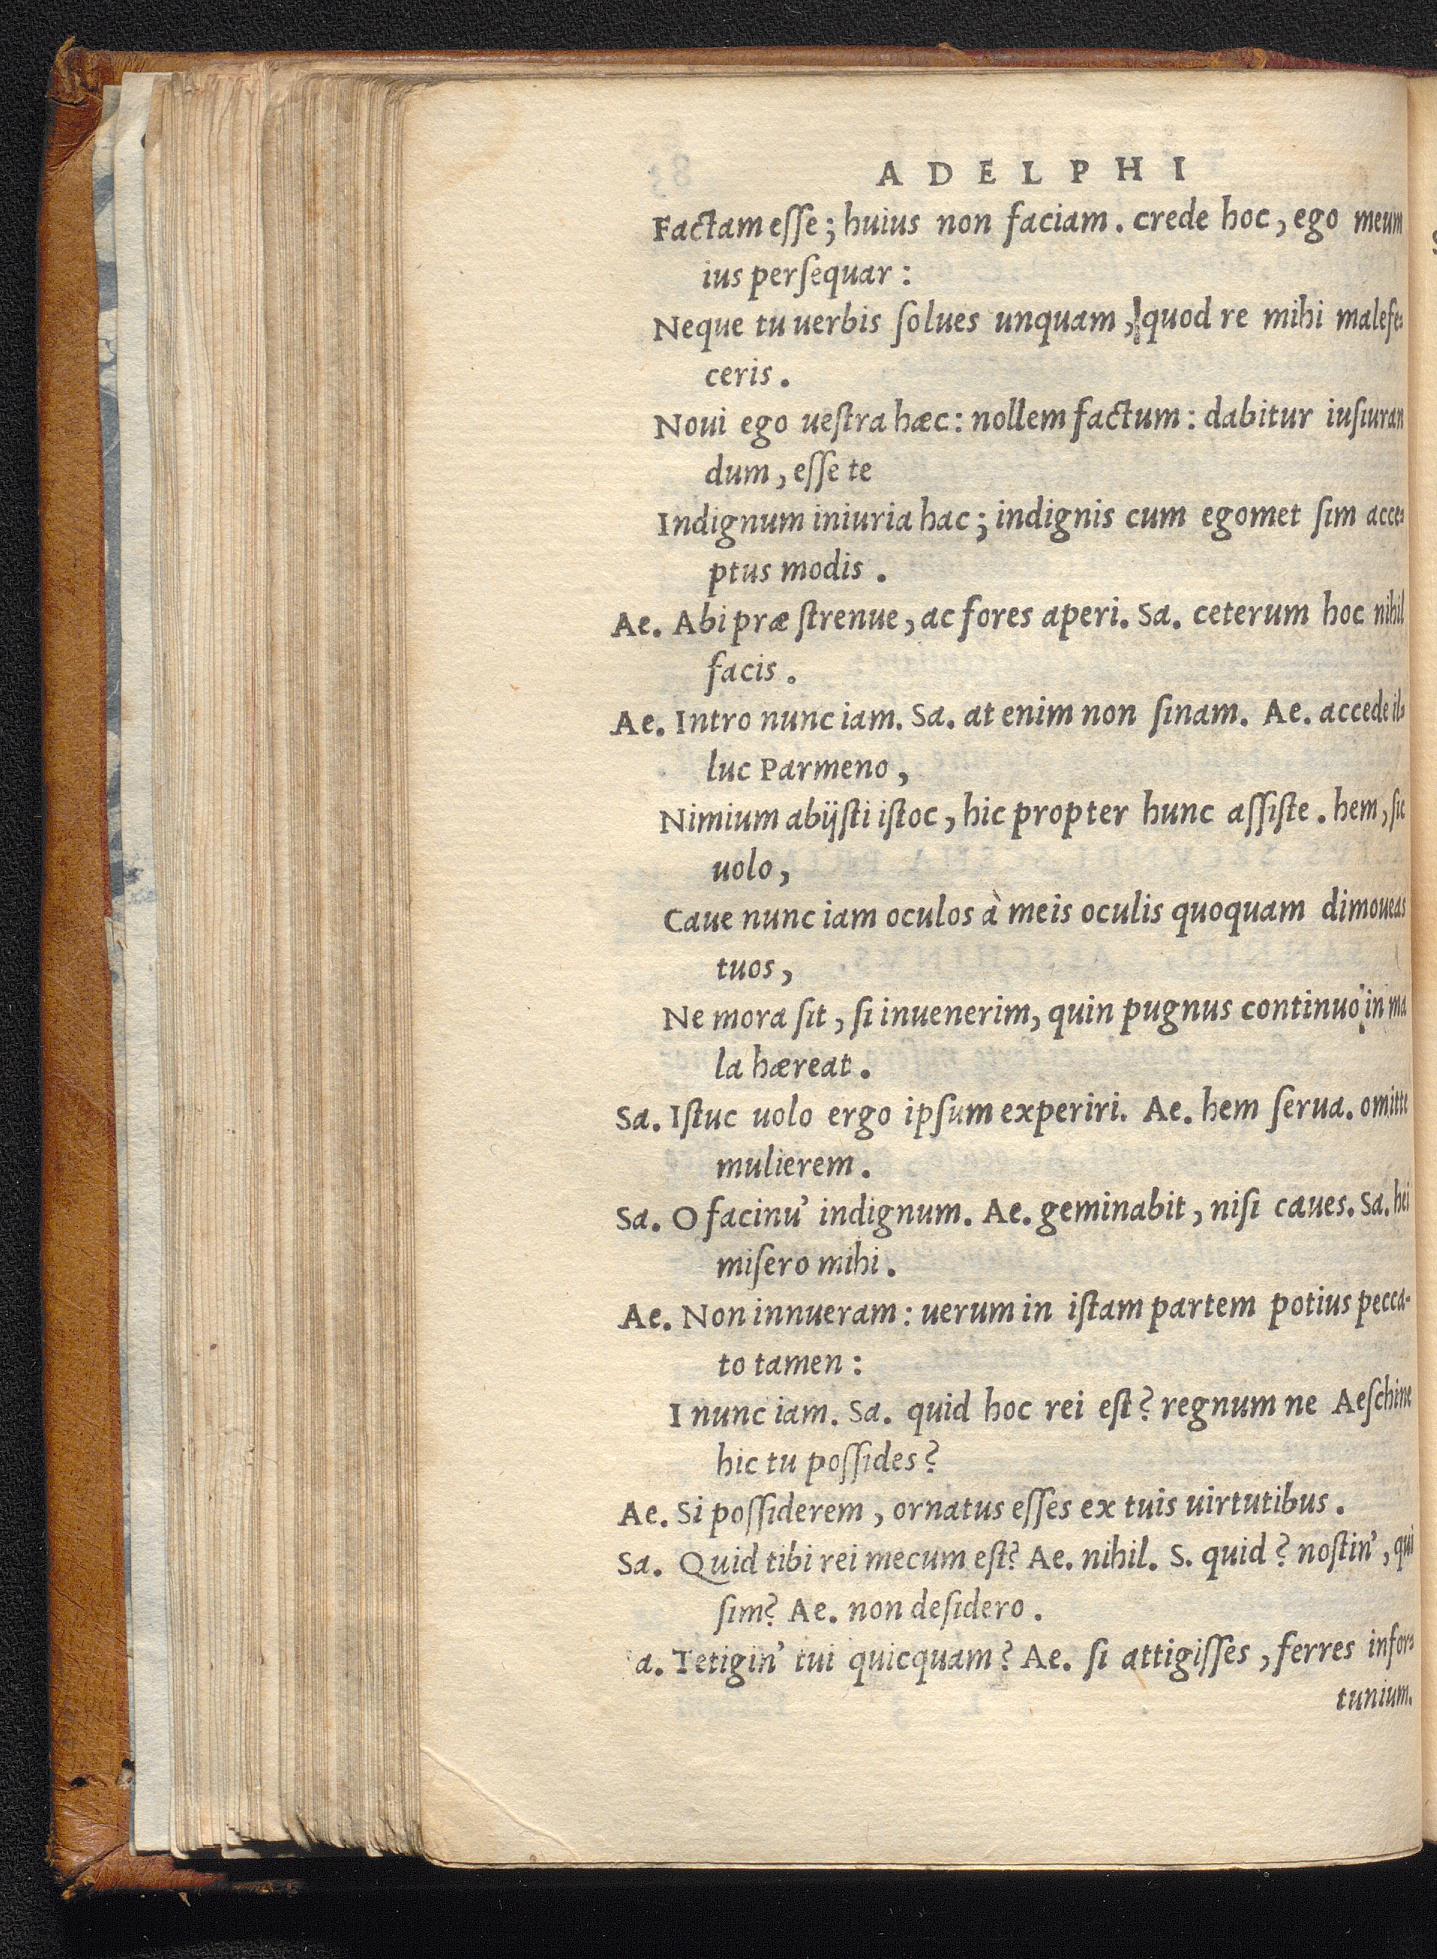 ADELPHI
Factam esse; huius non faciam. crede hoc, ego meum
ius persequar:
Neque tu uerbis solues unquam, quod re mihi malefe-
ceris.
Noui ego uestra hæc: nollem factum: dabitur iusiuran
dum, esse te
Indignum iniuria hac; indignis cum egomet sim acce-
ptus modis.
Ae. Abi præ strenue, ac fores aperi. Sa. ceterum hoc nihil
facis.
Ae. Intro nunc iam. Sa. at enim non sinam. Ae. accede il-
luc Parmeno,
Nimium abijsti istoc, hic propter hunc assiste. hem, sic
uolo,
Caue nunc iam oculos à meis oculis quoquam dimoueas
tuos,
Ne mora sit, si inuenerim, quin pugnus continuo in ma
la hæreat.
Sa. Istuc uolo ergo ipsum experiri. Ae. hem serua. omitte
mulierem.
Sa. O facinu' indignum. Ae. geminabit, nisi caues. Sa. hei
misero mihi.
Ae. Non innueram: uerum in istam partem potius pecca-
to tamen:
I nunc iam. Sa. quid hoc rei est? regnum ne Aeschine
hic tu possides?
Ae. Si possiderem, ornatus esses ex tuis uirtutibus.
Sa. Quid tibi rei mecum est? Ae. nihil. S. quid? nostin', qui
sim? Ae. non desidero.
a. Tetigin' tui quicquam? Ae. si attigisses, ferres infor-
tunium.